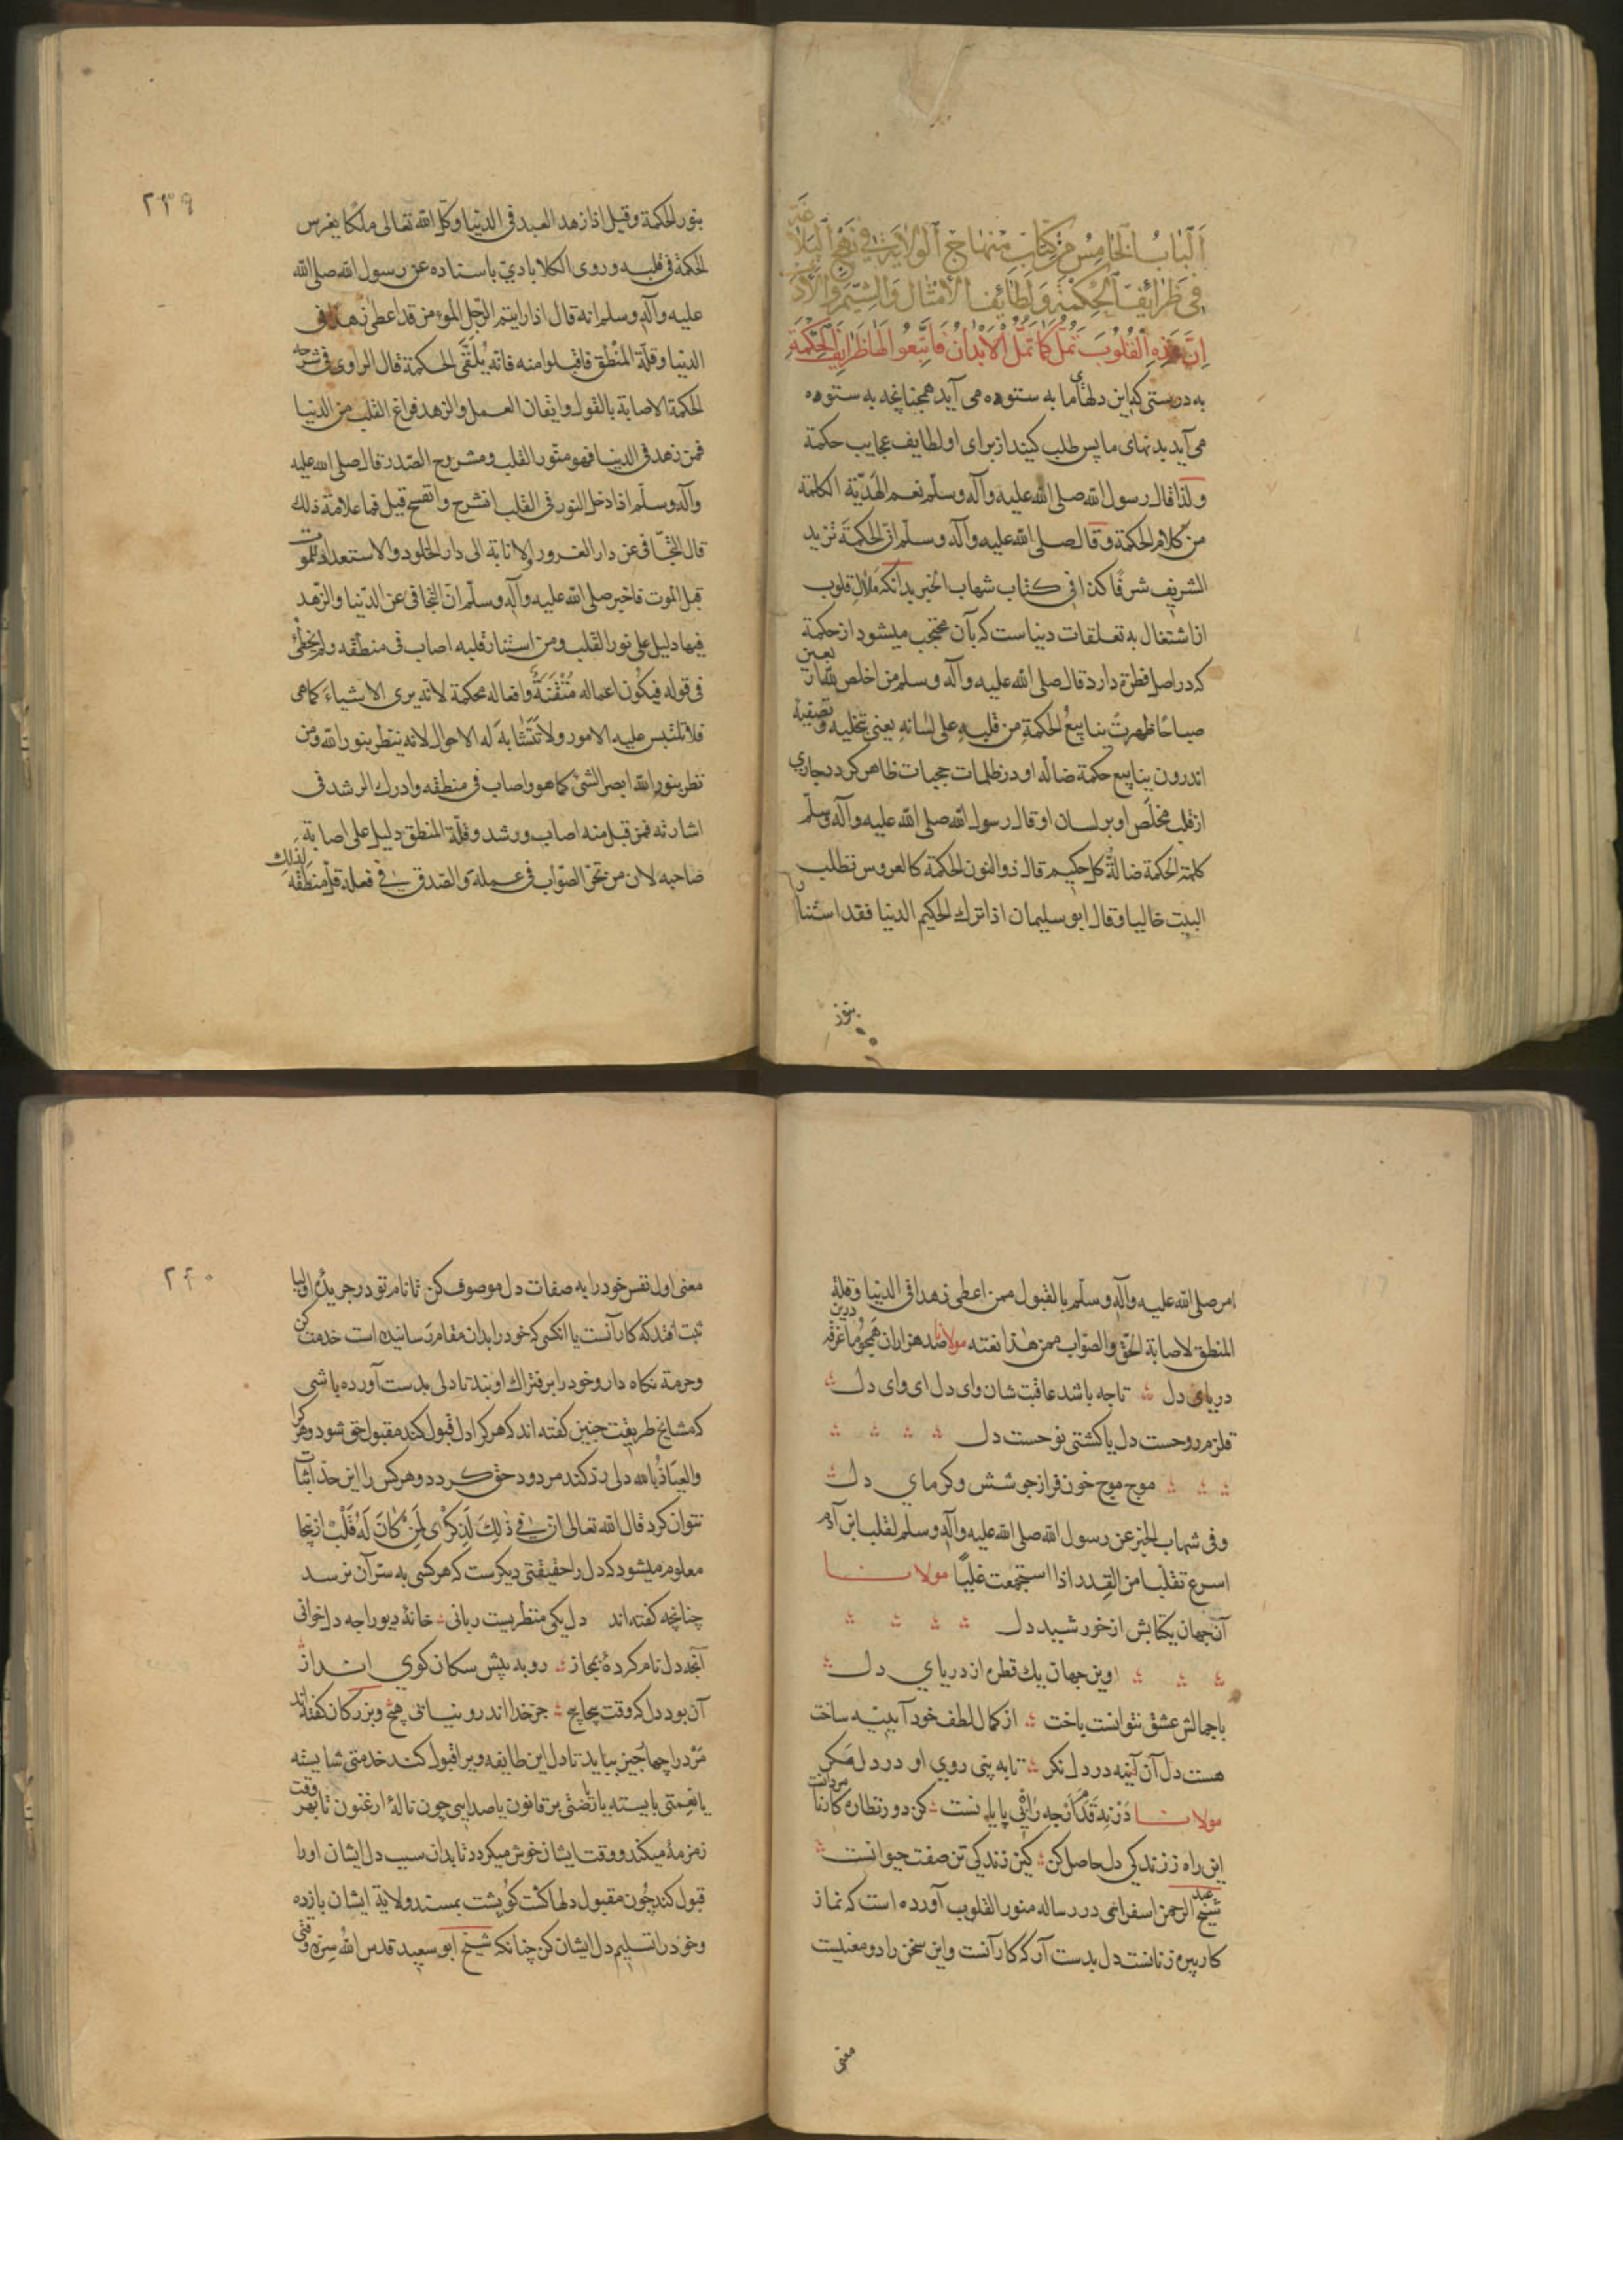 اَلْبابُ الْخامِسُ مِنْ كِتابِ مِنْهاجِ الْوِلايَةِ فى نَهْجِ الْبَلاغَةِ
فى طَرائِفِ الْحِكْمَةِ وَلَطائِفِ الْأَمْثالِ وَالشِّيَمِ وَالْآدابِ
اِنَّ هٰذِهِ الْقُلُوبَ تَمَلُّ كَمَا تَمَلُّ الْأَبْدانُ فَابْتَغُوا لَهَا طَرَايِفَ الْحِكْمَةِ
به درستی كه این دلهای ما به ستوه می آید همچنانچه به ستوه
می آید بدنهای ما پس طلب كنید از برای او لطایف عجایب حكمة
ولذا قال رسول الله صلی الله علیه وآله وسلّم نعم الهدیّة الكلمة
من كلام الحكمة وقال صلی الله علیه وآله وسلّم انّ الحكمةَ تزید
الشریف شرفًا كذا فی كتاب شهاب الخبر بدانكه ملال قلوب
از اشتغال به تعلقات دنیاست كه بآن محتجب میشود از حكمة
كه در اصل فطرة دارد قال صلی الله علیه وآله وسلم من اخلص لله اربعین
صباحًا ظهرتْ ینابیعُ الحكمةِ من قلبهِ علی لسانهِ یعنی تخلیه وتصفیهٔ
اندرون ینابیع حكمة ضالّه او در ظلمات حجبات ظاهر كردد بجاری
از قلب مخلَص او بر لسان او قال رسول الله صلی الله علیه وآله وسلّم
كلمة الحكمة ضالةُ كل حكیم قال ذو النون الحكمة كالعروس تطلب
البیت خالیا وقال ابو سلیمان اذا ترك الحكیم الدنیا فقد استنار
بنور
٢٣٩
بنور الحكمة وقیل اذا زهد العبد فی الدنیا وكّل الله تعالی ملكًا یغرس
الحكمة فی قلبه وروی الكلابادیّ باسناده عن رسول الله صلی الله
علیه وآله وسلم انه قال اذا رایتم الرّجل المؤمن قد اعطی زهدًا فی
الدنیا وقلّة المنْطق فاقبلوا منه فانّه یُلَقَّی الحكمة قال الراوی فی شرحه
الحكمة الاصابة بالقول واتقان العمل والزهد فراغ القلب من الدنیا
فمن زهد فی الدنیا فهو منوّر القلب ومشروح الصّدر قال صلی الله علیه
وآله وسلّم اذا دخل النور فی القلب انشرح وانفسح قیل فما علامة ذلك
قال التّجافی عن دار الغرور والانابة الی دار الخلود والاستعداد للموت
قبل الموت فاخبر صلی الله علیه وآله وسلّم انّ التجافی عن الدّنیا والزّهد
فیها دلیل علی نور القلب ومن استنار قلبه اصاب فی منطقه ولم یخطئ
فی قوله فیكون اعماله مُتْقَنَةً وافعاله محكمة لانّه یری الاشیاءَ كما هی
فلا تلتبس علیه الامور ولا تَتَشابهَ له الاحوال لانه ینظر بنور الله ومن
نظر بنور الله ابصر الشئ كما هو واصاب فی منطقه وادرك الرشد فی
اشارته فمن قبل منه اصاب ورشد وقلّة المنطق دلیل علی اصابة
صاحبه لان من تحرّ الصّواب فی عمله والصّدق فی فعله قلّ منطقه لذلك
امر صلی الله علیه وآله وسلم بالقبول ممن اعطی زهدا فی الدنیا وقلة
المنطق لاصابة الحقّ والصّواب ممن هذا نعته مولانا صد هزاران همچو ما غرقه درین
دریای دل تا چه باشد عاقبت شان وای دل ای وای دل
قلزم روحست دل یا كشتی نوحست دل
موج موج خون فراز جوشش وكرمای دل
وفی شهاب الخبر عن رسول الله صلی الله علیه وآله وسلم لقلب ابن آدم
اسرع تقلّبا من القِدر اذا استجمعت غلیًا مولانا
آنجهان یكتابش از خورشید دل
وین جهان یك قطره از دریای دل
با جمالش عشق نتوانست باخت از كمال لطف خود آیینه ساخت
هست دل آن آینه در دل نكر تا به بینی روی او در دل مكر
مولانا كن دو رنظاره كار نا مردانست
این راه ز زندكی دل حاصل كن كین زندكی تن صفت حیوانست
شیخ عبد الرحمن اسفراینی در رساله منور القلوب آورده است كه نماز
كار پیره زنانست دل بدست آر كه كار آنست واین سخن را دو معنیست
معنی
٢٤٠
معنی اول نفس خود را به صفات دل موصوف كن تا نام تو در جریدهٔ اولیا
ثبت افتد كه كار آنست یا آنكس كه خود را بدان مقام رسانیده است خدمت كن
وحرمة نكاه دار وخود را بر فتراك او بند تا دلی بدست آورده باشی
كه مشایخ طریقت چنین كفته اند كه هر كرا دل قبول كند مقبول حق شود وهر كرا
والعیاذُ بالله دلی رد كند مردود حق كردد وهر كس را این حد اثبات
نتوان كرد قال الله تعالی اِنَّ فی ذٰلِكَ لَذِكْری لِمَنْ كانَ لَهُ قَلْبٌ از اینجا
معلوم میشود كه دل را حقیقتی دیكرست كه هر كسی به سرّ آن نرسد
چنانچه كفته اند دل یكی منظریست ربانی خانهٔ دیو را چه دل خوانی
آنچه دل نام كردهٔ بمجاز رو به پیش سكان كوی انداز
آن بود دل كه وقت پیچا پیچ جز خدا اندرو نیابی هیچ وبزركان كفته اند
مرد را چهار چیز بباید تا دل این طایفه ویرا قبول كند خدمتی شایسته
یا نعمتی بایسته یا نقشی بر قانون یا صدایی چون نالهٔ ارغنون تا بهر وقت
زمزمهٔ میكند ووقت ایشان خوش میكردد تا بدان سبب دل ایشان او را
قبول كند چون مقبول دلها كشت كو پشت بمسند ولایة ایشان باز ده
وخود را تسلیم دل ایشان كن چنانكه شیخ ابو سعید قدس الله سره وقتی